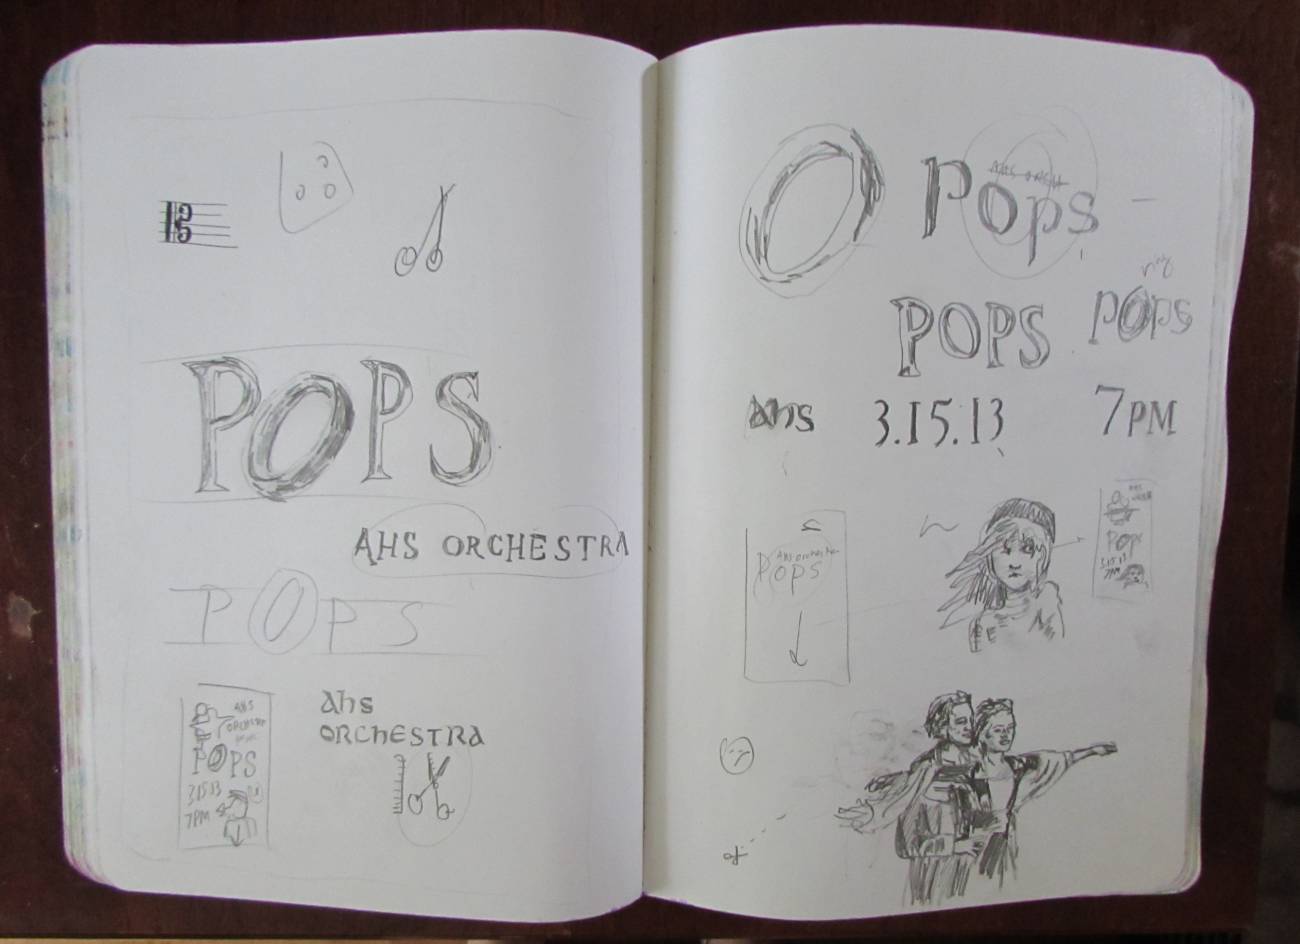 POPS
AHS ORCHESTRA
POPS
AHS
ORCHESTRA
POPS
3.15.13
7PM
Ahs
ORChESTRA
O
Pops
AHS ORCH
POPS
pops
ahs
3.15.13
7PM
AHS Orchestra
POPS
AHS
POPS
3.15.13
7PM